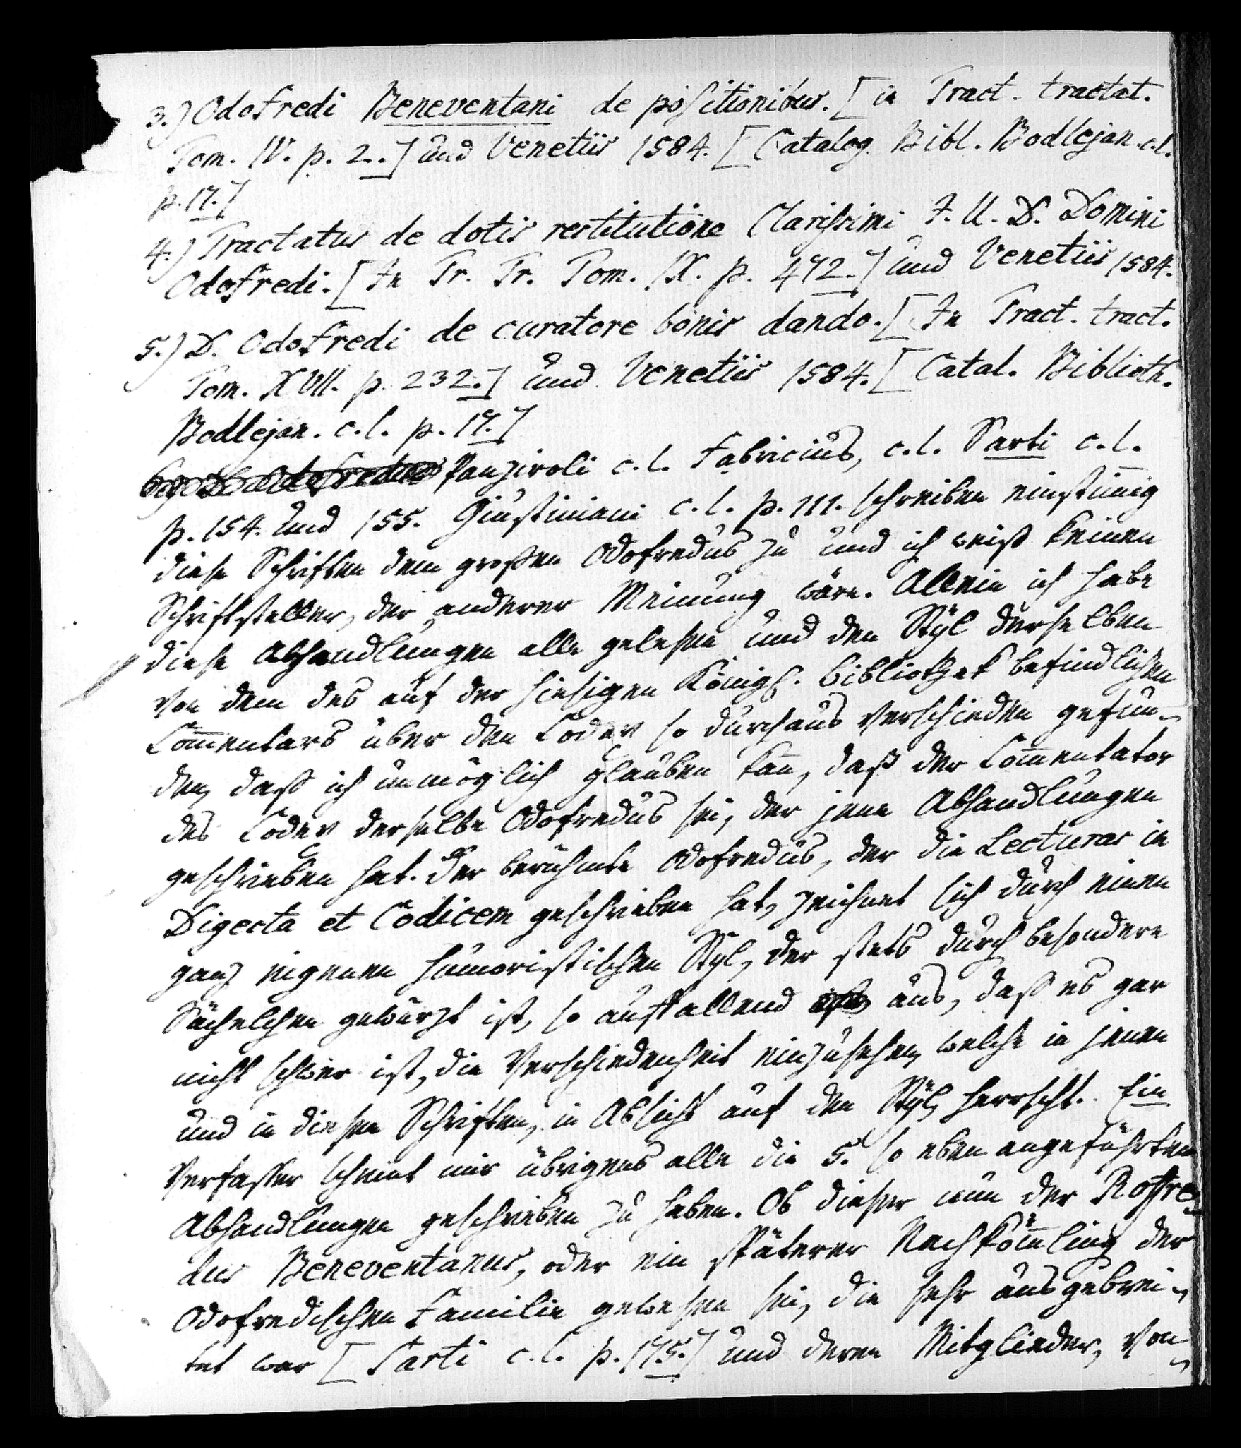 3.) Odofredi Beneventani de positionibus. [in Tract. tractat.
Tom. IV. p. 2.] und Venetiis 1584. [Catalog. Bibl. Bodlejan. c.l.
p. 17.]
4.) Tractatus de dotis restitutione Clarissimi J. U. D. Domini
Odofredi. [In Tr. Tr. Tom. IX. p. 472.] und Venetiis 1584.
5.) D. Odofredi de curatore bonis dando. [In Tract. tract.
Tom. XVII. p. 232.] und Venetiis 1584. [Catal. Biblioth.
Bodlejan. c.l. p. 17.]
Panziroli c.l. Fabricius, c.l. Sarti c.l.
p. 154. und 155. Giustiniani c.l. p. 111. schreiben einstim̅ig
diese Schriften dem großen Odofredus zu und ich weiß keinen
Schriftsteller, der anderer Meinung wäre. Allein ich habe
diese Abhandlungen alle gelesen und den Styl derselben
von dem des auf der hiesigen Königl. Bibliothek befindlichen
Com̅entars über den Codex so durchaus verschieden gefun-
den, daß ich unmöglich glauben kan̅, daß der Com̅entator
des Codex derselbe Odofredus sei, der jene Abhandlungen
geschrieben hat. Der berühmte Odofredus, der die Lecturas in
Digesta et Codicem geschrieben hat, zeichnet sich durch einen
ganz eigenen humoristischen Styl, der stets durch besondere
Sächelchen gewürzt ist, so auffallend aus, daß es gar
nicht schwer ist, die Verschiedenheit einzusehen, welche in jenen
und in diesen Schriften, in Absicht auf den Styl, herrscht. Ein
Verfasser scheint mir übrigens alle die 5. so eben angeführten
Abhandlungen geschrieben zu haben. Ob dieser nun der Roffre-
dus Beneventanus, oder ein späterer Nachköm̅ling der
Odofredischen Familie gewesen sei, die sehr ausgebrei-
tet war [Sarti c.l. p. 175.] und deren Mitglieder, von-